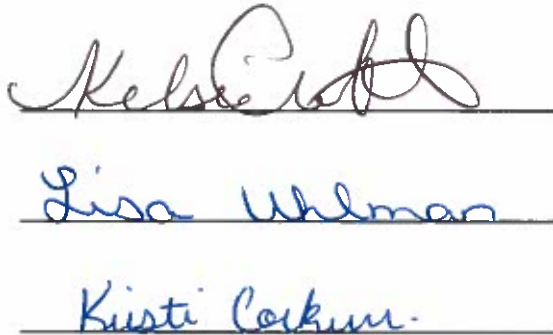 Kelsie
Lisa Uhlman
Kristi Corkum